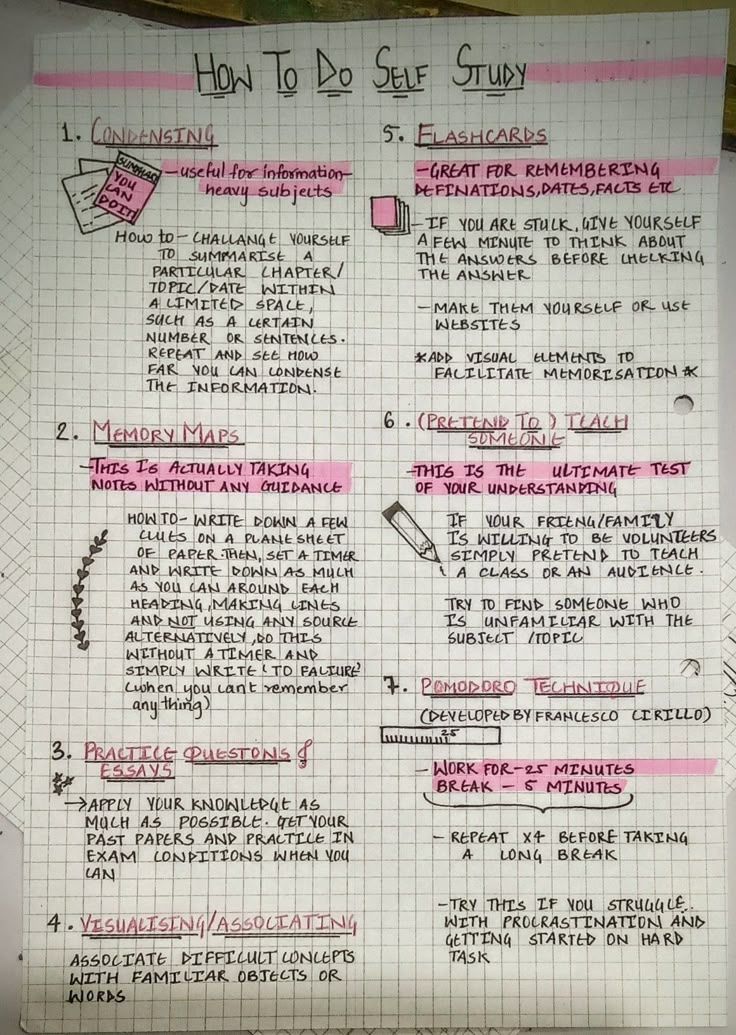 HOW TO DO SELF STUDY
1. CONDENSING
SUMMARY
YOU
CAN
DO IT!
- useful for information-
heavy subjects
HOW to - CHALLANGE YOURSELF
TO SUMMARISE A
PARTICULAR CHAPTER/
TOPIC/DATE WITHIN
A LIMITED SPACE,
SUCH AS A CERTAIN
NUMBER OR SENTENCES.
REPEAT AND SEE HOW
FAR YOU CAN CONDENSE
THE INFORMATION.
2. MEMORY MAPS
- THIS IS ACTUALLY TAKING
NOTES WITHOUT ANY GUIDANCE
HOW TO - WRITE DOWN A FEW
CLUES ON A PLANE SHEET
OF PAPER THEN, SET A TIMER
AND WRITE DOWN AS MUCH
AS YOU CAN AROUND EACH
HEADING, MAKING LINES
AND NOT USING ANY SOURCE
ALTERNATIVELY, DO THIS
WITHOUT A TIMER AND
SIMPLY WRITE 'TO FALIURE'
(when you cant remember
any thing)
3. PRACTICE QUESTONS &
ESSAYS
→ APPLY YOUR KNOWLEDGE AS
MUCH AS POSSIBLE. GET YOUR
PAST PAPERS AND PRACTICE IN
EXAM CONDITIONS WHEN YOU
CAN
4. VISUALISING/ASSOCIATING
ASSOCIATE DIFFICULT CONCEPTS
WITH FAMILIAR OBJECTS OR
WORDS
5. FLASHCARDS
- GREAT FOR REMEMBERING
DEFINATIONS, DATES, FACTS ETC
- IF YOU ARE STUCK, GIVE YOURSELF
A FEW MINUTE TO THINK ABOUT
THE ANSWERS BEFORE CHECKING
THE ANSWER
- MAKE THEM YOURSELF OR USE
WEBSITES
*ADD VISUAL ELEMENTS TO
FACILITATE MEMORISATION *
6. (PRETEND TO) TEACH
SOMEONE
- THIS IS THE ULTIMATE TEST
OF YOUR UNDERSTANDING
IF YOUR FRIENG/FAMILY
IS WILLING TO BE VOLUNTEERS
SIMPLY PRETEND TO TEACH
A CLASS OR AN AUDIENCE.
TRY TO FIND SOMEONE WHO
IS UNFAMILIAR WITH THE
SUBJECT /TOPIC
7. POMODORO TECHNIQUE
(DEVELOPED BY FRANCESCO CIRILLO)
25
- WORK FOR - 25 MINUTES
BREAK - 5 MINUTES
- REPEAT X4 BEFORE TAKING
A LONG BREAK
- TRY THIS IF YOU STRUGGLE..
WITH PROCRASTINATION AND
GETTING STARTED ON HARD
TASK